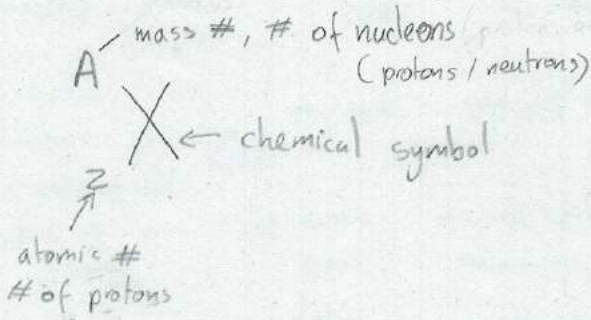 mass #, # of nucleons
A
(protons / neutrons)
X ← chemical symbol
Z
atomic #
# of protons